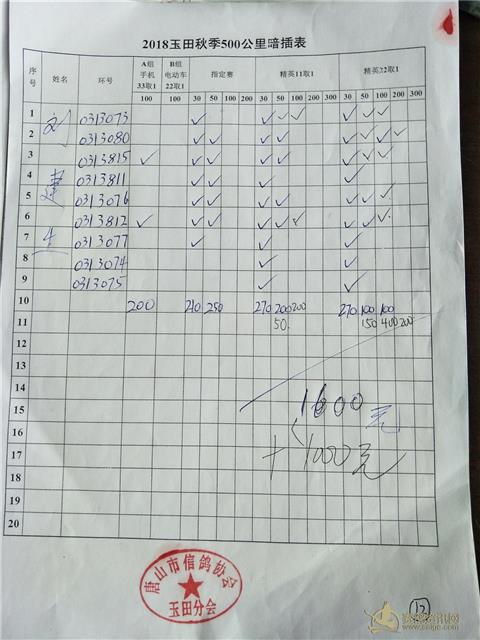 2018玉田秋季500公里暗插表
序号 姓名 环号 A组手机33取1 B组电动车22取1 指定赛 精英11取1 精英22取1
100 100 30 50 100 200 30 50 100 200 300 30 50 100 200 300
1 刘 0313073 ✓ ✓ ✓ ✓ ✓ ✓ ✓
2 0313080 ✓ ✓ ✓ ✓ ✓ ✓ ✓ ✓
3 0313815 ✓ ✓ ✓ ✓ ✓ ✓ ✓ ✓
4 0313811 ✓ ✓ ✓ ✓
5 建 0313076 ✓ ✓ ✓ ✓ ✓ ✓ ✓
6 0313812 ✓ ✓ ✓ ✓ ✓ ✓ ✓ ✓ ✓
7 生 0313077 ✓ ✓ ✓
8 0313074 ✓ ✓
9 0313075 ✓ ✓
10 200 210 250 270 200 200 270 100 100
11 50. 150 400 200
12
13
14
15 1600元
16
17 + 1000元
18
19
20
唐山市信鸽协会
玉田分会
12